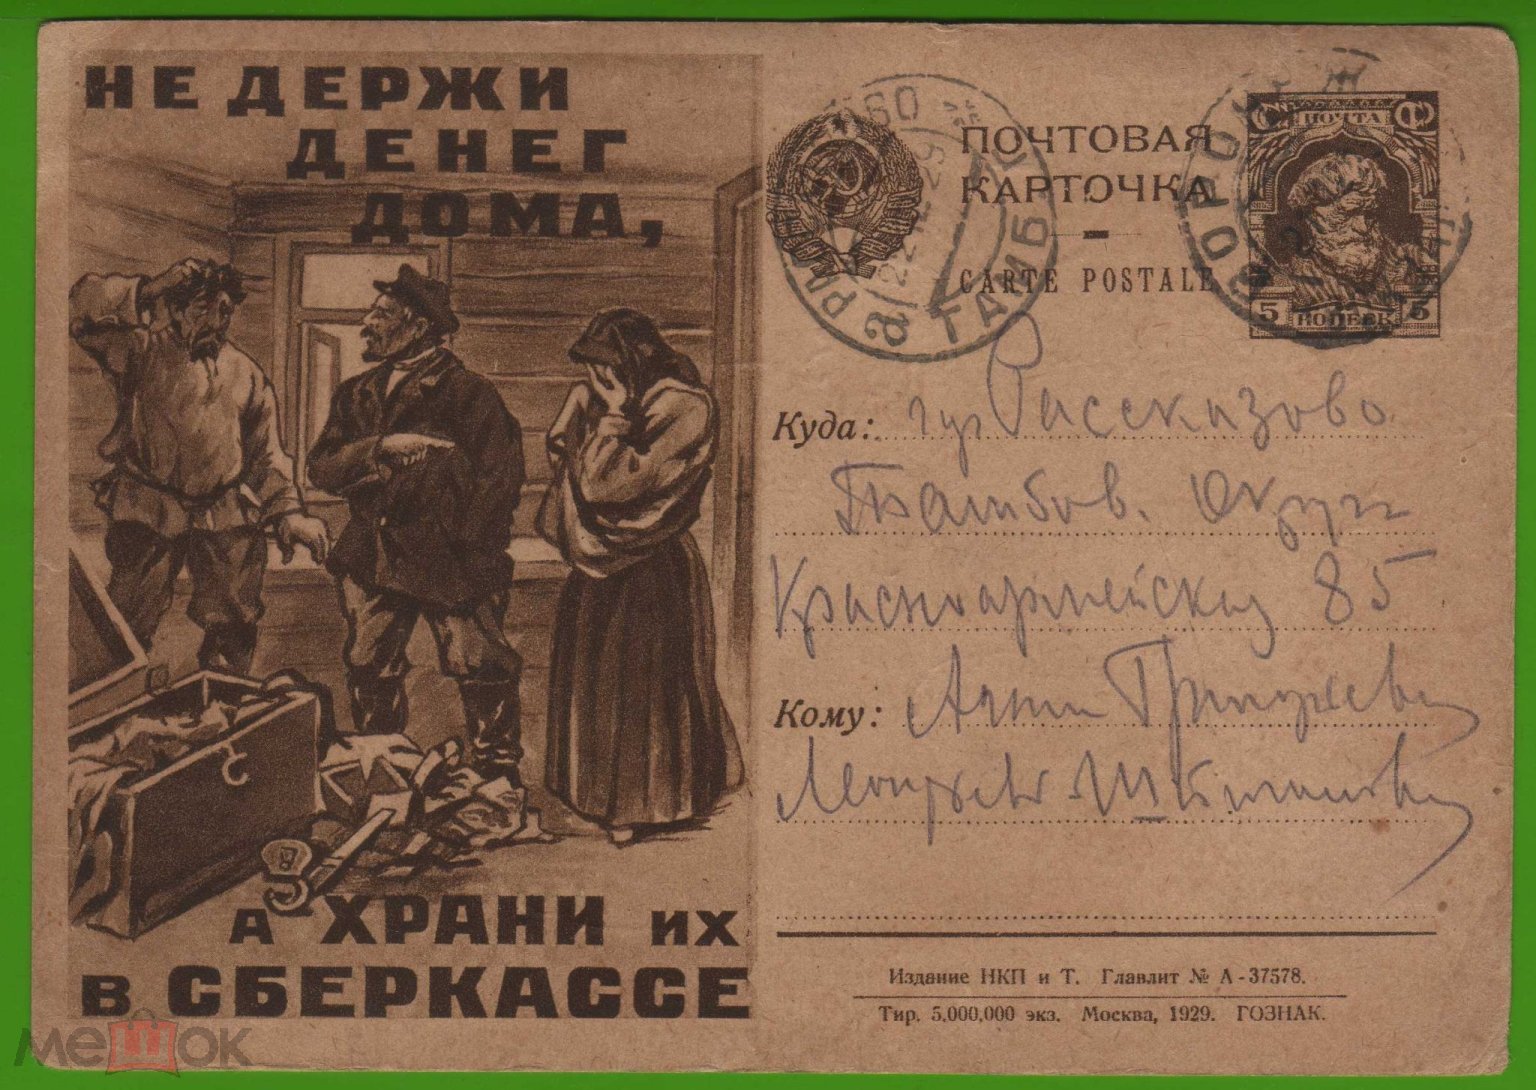 НЕ ДЕРЖИ
ДЕНЕГ
ДОМА,
А ХРАНИ ИХ
В СБЕРКАССЕ
ПОЧТОВАЯ
КАРТОЧКА
CARTE POSTALE
ПОЧТА
5 КОПЕЕК 5
ВОРОНЕЖ
ТАМБ
а 22.12.29
Куда: Рассказово
Тамбов. Округ
Красноармейская 85
Кому: Анне
Издание НКП и Т. Главлит № А-37578.
Тир. 5,000,000 экз. Москва, 1929. ГОЗНАК.
мешок